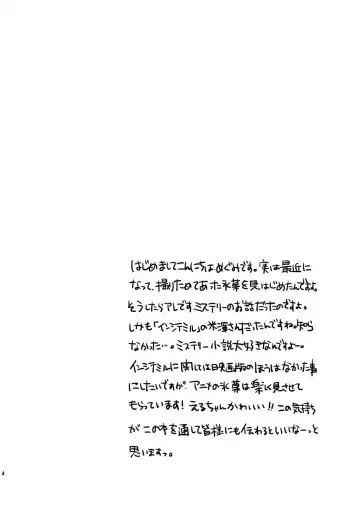 はじめましてこんにちはめぐみです。実は最近に
なって、撮りためてあった氷菓を見はじめたんですよ。
そうしたらアレですミステリーのお話だったのですよ。
しかも「インシテミル」の米澤さんだったんですね知ら
なかった…。ミステリー小説大好きなんですよー。
インシテミルに関しては映画版のほうはなかった事
にしたいですが、アニメの氷菓は楽しく見させて
もらっています！えるちゃんかわいい!!この気持ち
がこの本を通して皆様にも伝わるといいなーっと
思いますっ。
4